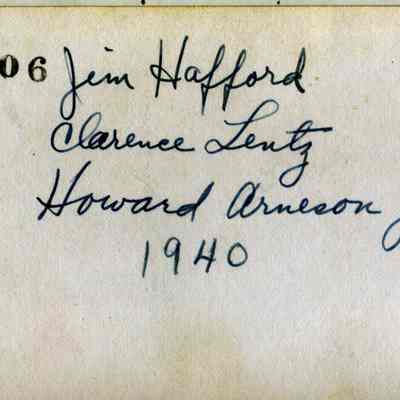 06 Jim Hafford
Clarence Lentz
Howard Arneson
1940